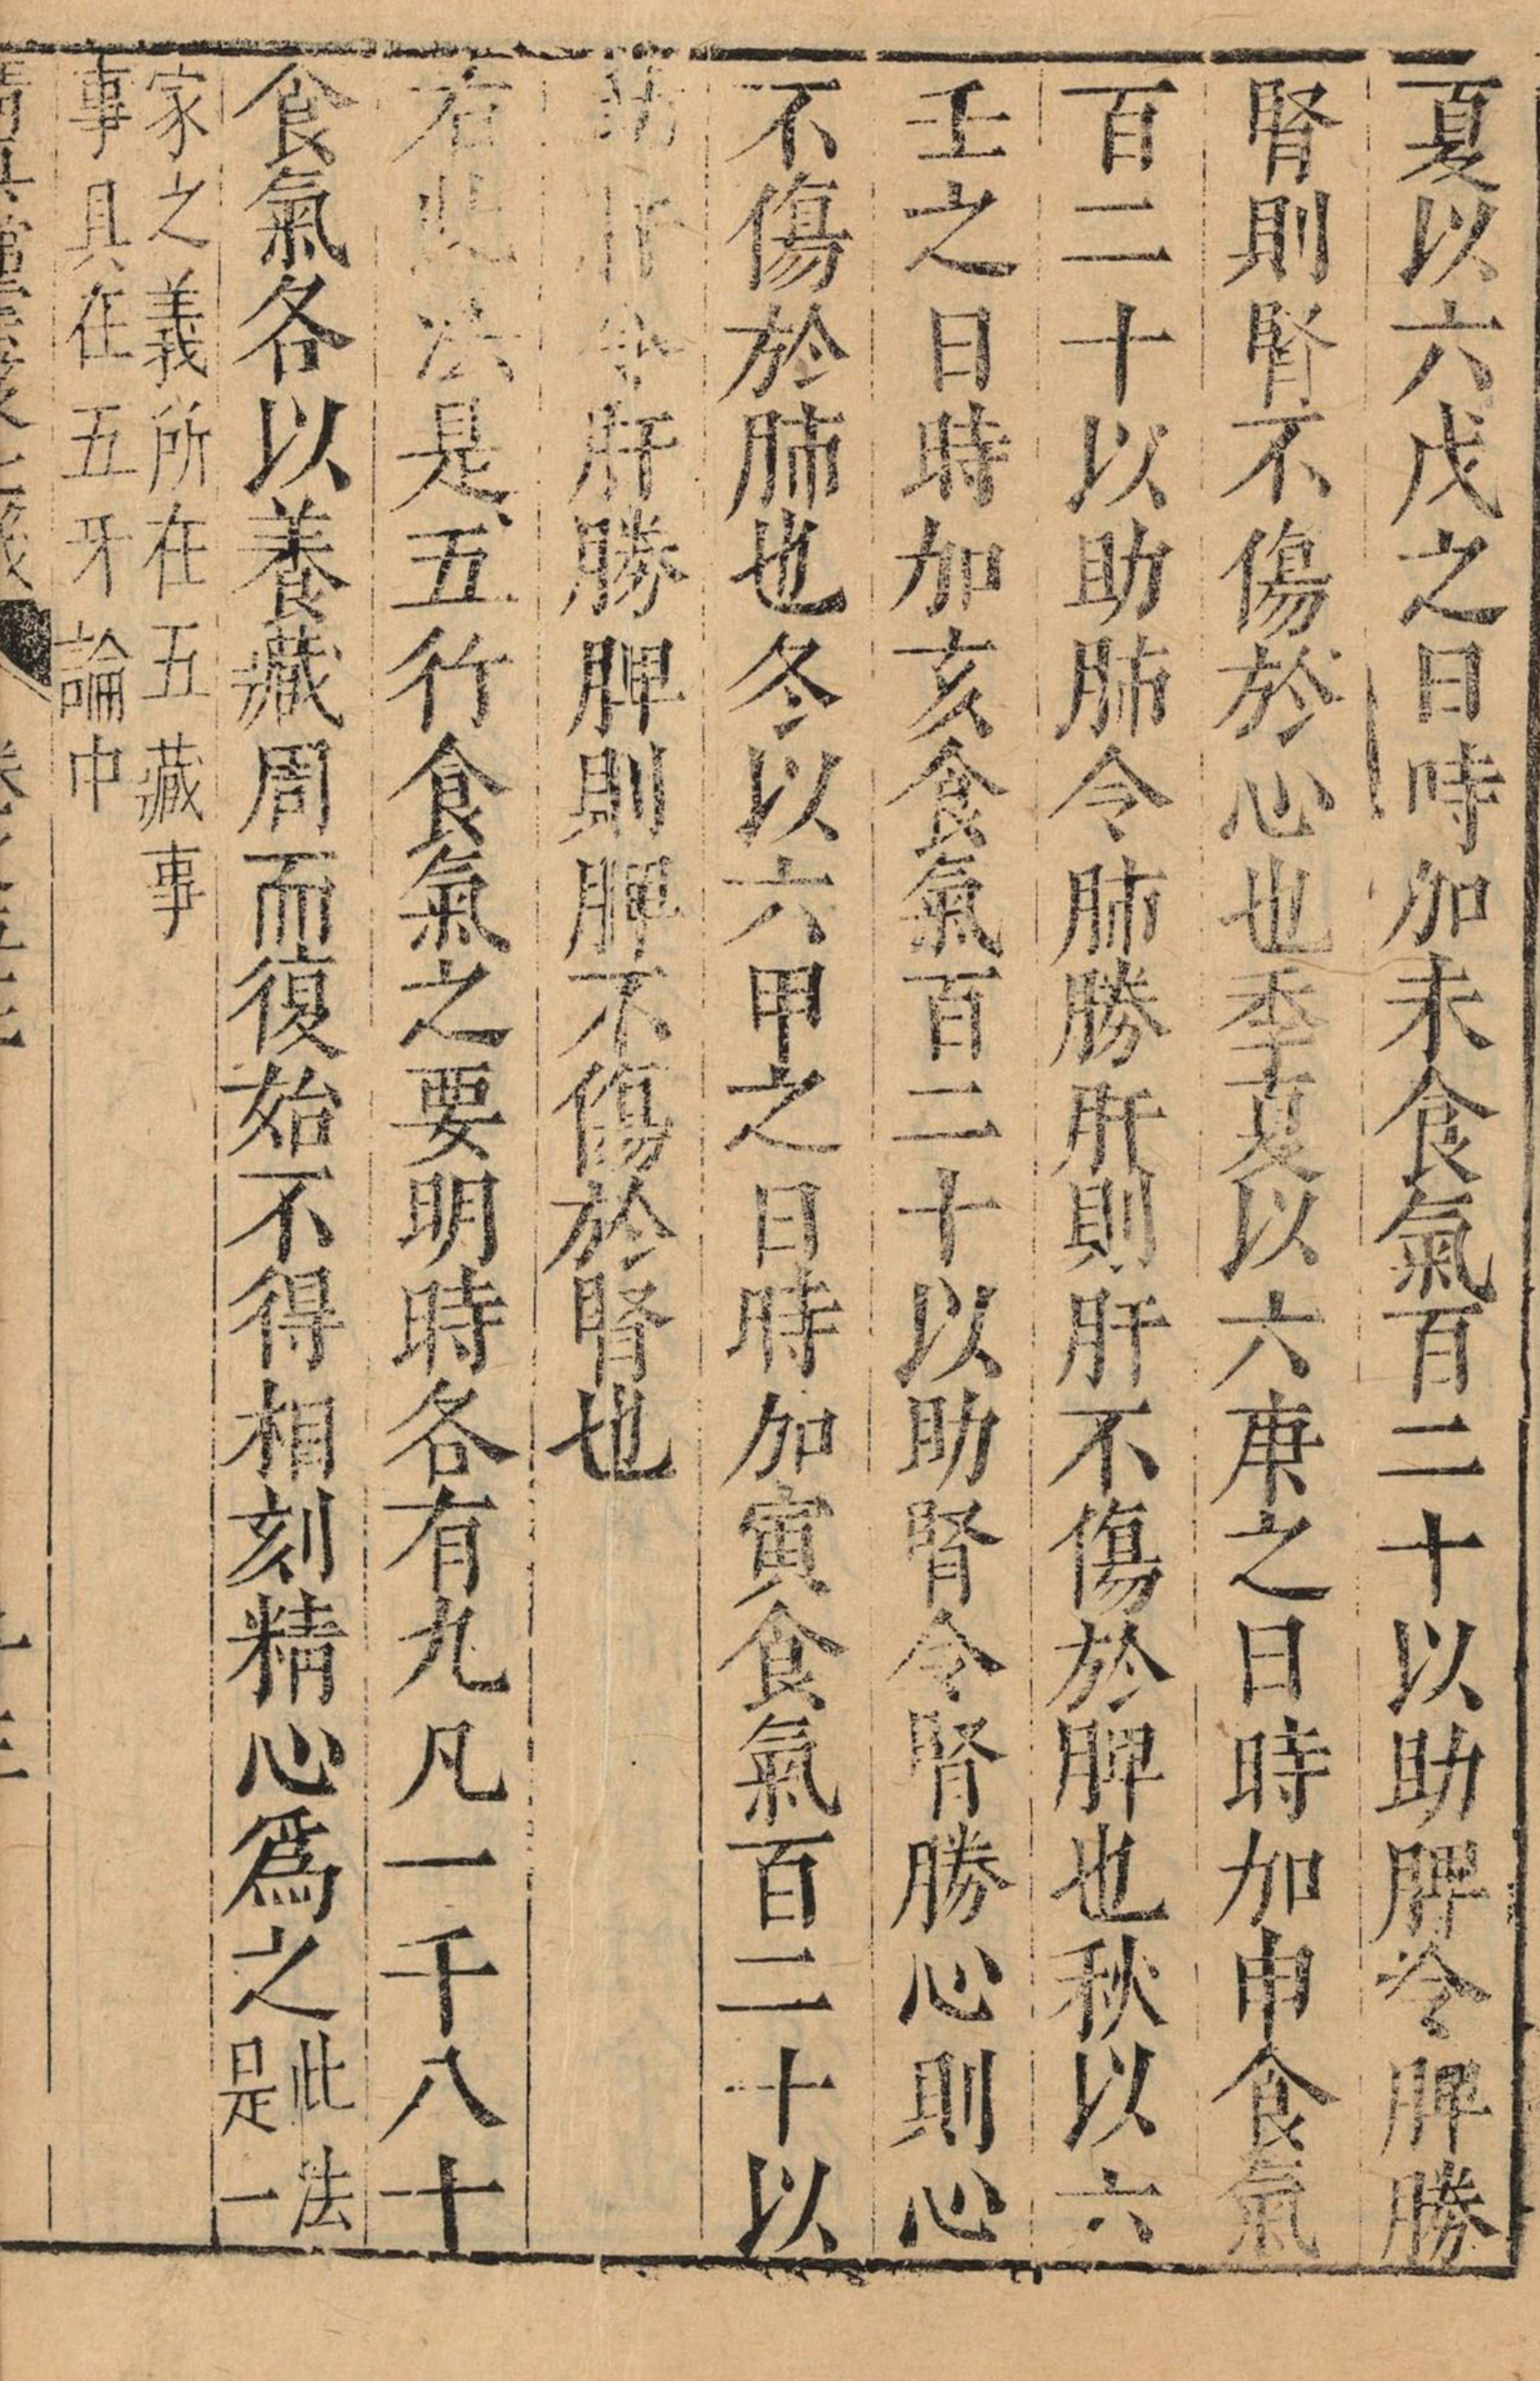 夏以六戊之日時加未食氣百二十以助脾令脾勝
腎則腎不傷於心也季夏以六庚之日時加申食氣
百二十以助肺令肺勝肝則肝不傷於脾也秋以六
壬之日時加亥食氣百二十以助腎令腎勝心則心
不傷於肺也冬以六甲之日時加寅食氣百二十以
助肝令肝勝脾則脾不傷於腎也
右此法是五行食氣之要明時各有九凡一千八十
食氣各以養藏周而復始不得相刻精心爲之此法
是一
家之義所在五藏事
事具在五牙論中